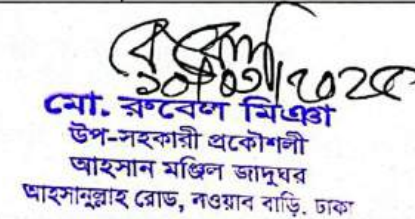 ১০/০৩/২০২৫
মো. রুবেল মিঞা
উপ-সহকারী প্রকৌশলী
আহসান মঞ্জিল জাদুঘর
আহসানুল্লাহ রোড, নওয়াব বাড়ি, ঢাকা